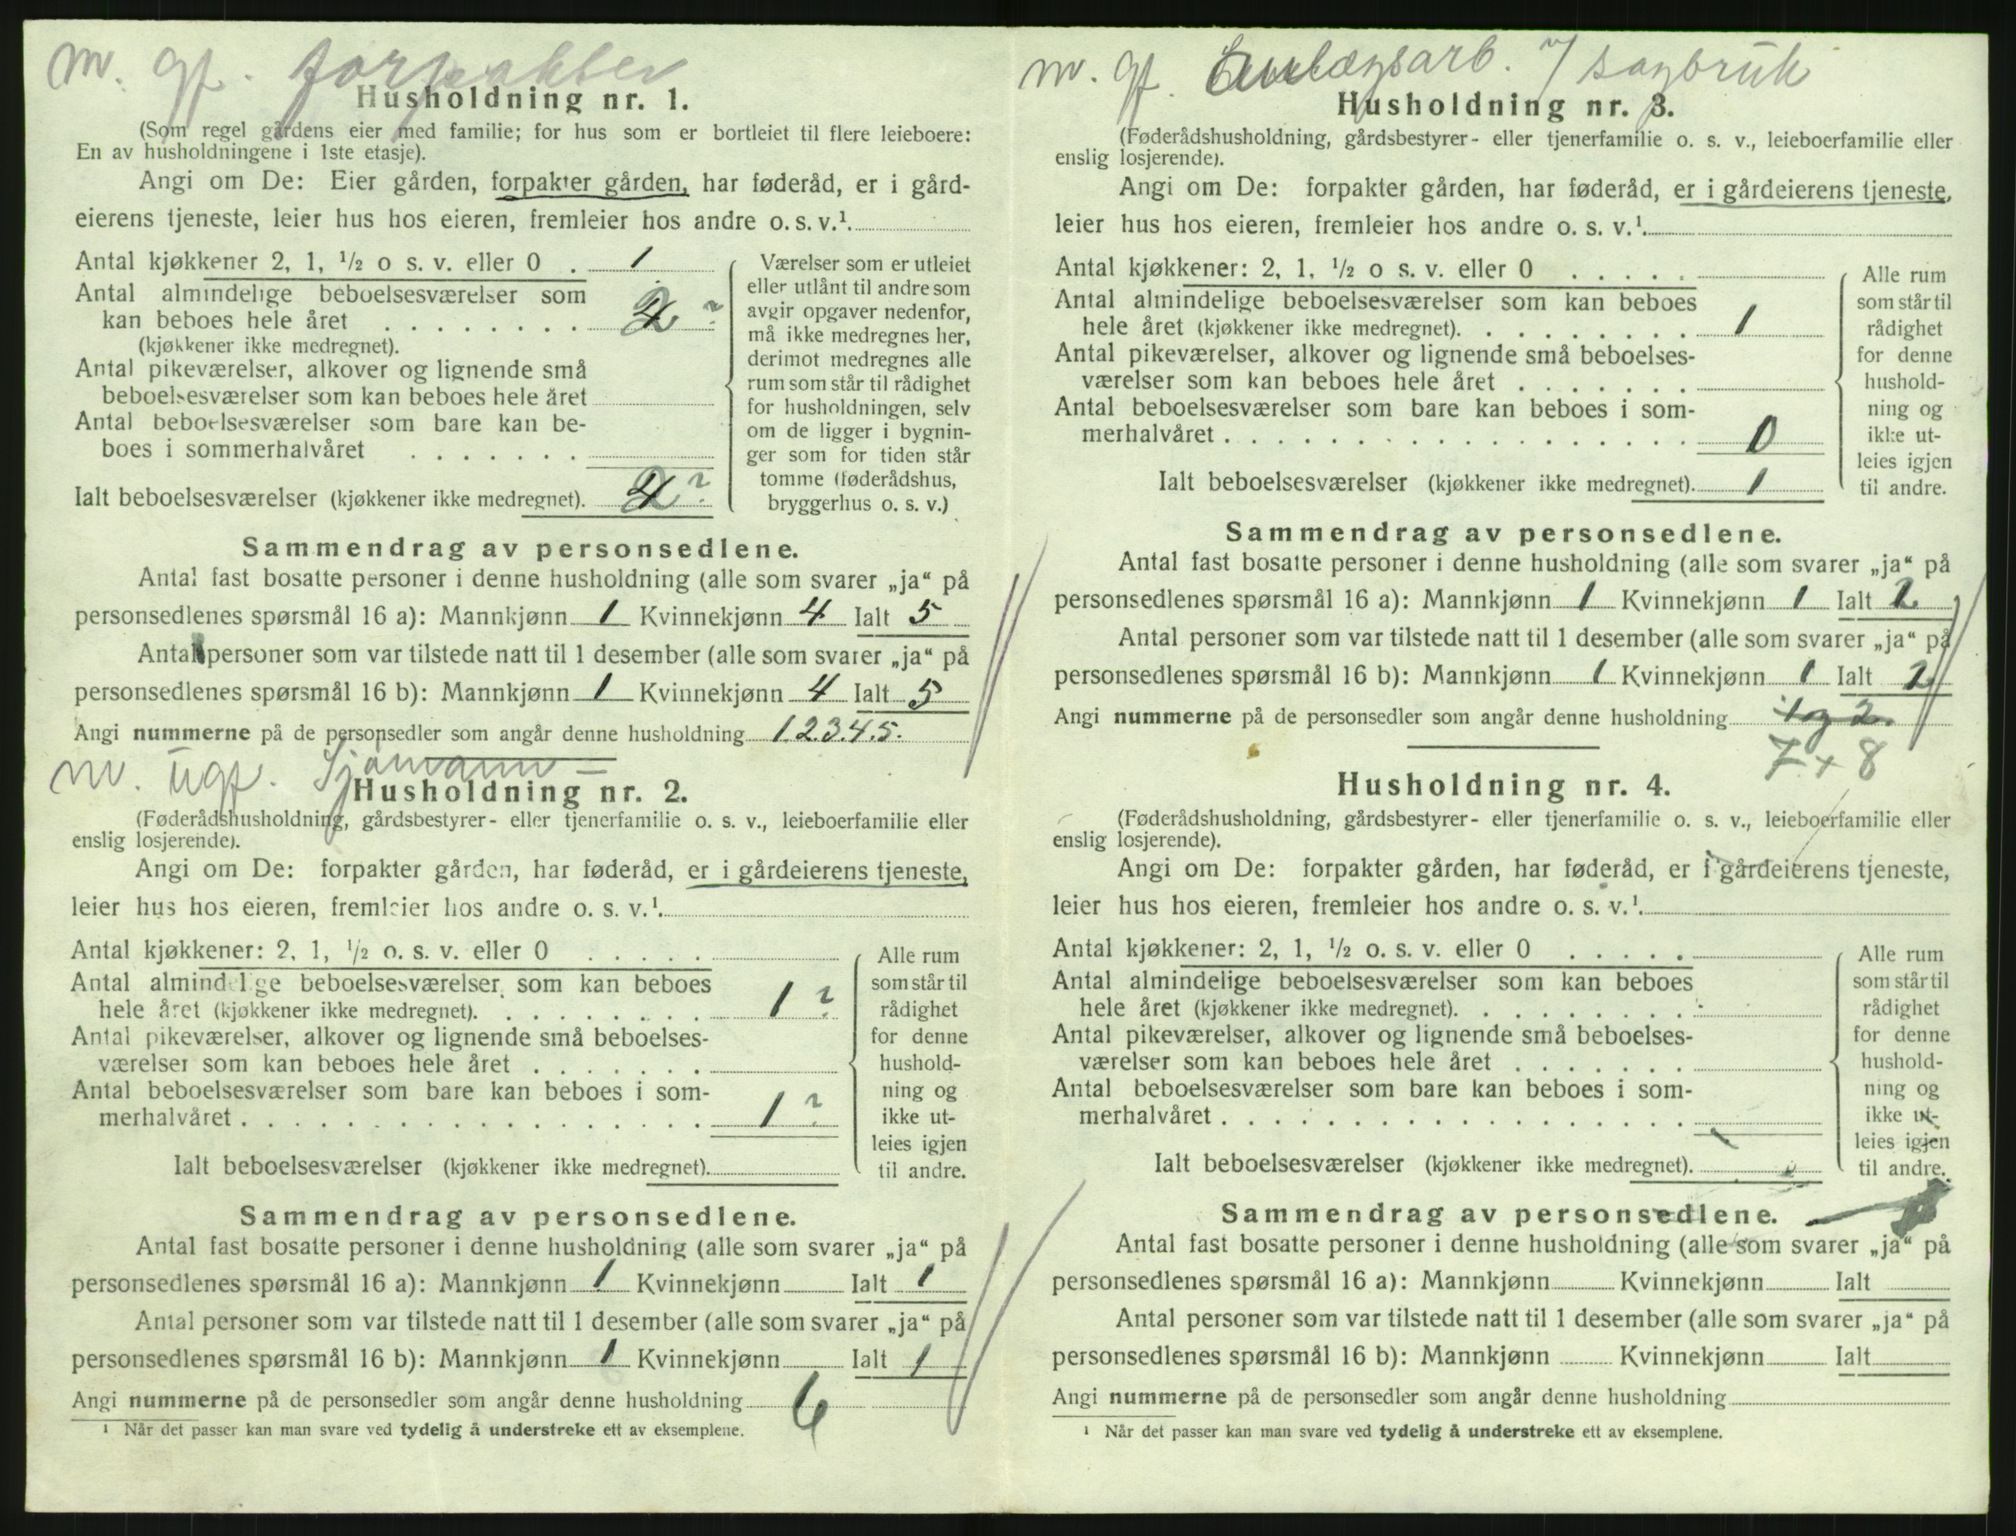 m. gf. forpakter
Husholdning nr. 1.
(Som regel gårdens eier med familie; for hus som er bortleiet til flere leieboere:
En av husholdningene i 1ste etasje).
Angi om De: Eier gården, forpakter gården, har føderåd, er i gård-
eierens tjeneste, leier hus hos eieren, fremleier hos andre o. s. v.¹.
Antal kjøkkener 2, 1, ½ o s. v. eller 0 . 1
Antal almindelige beboelsesværelser som
kan beboes hele året . . . . . . . . 2 ?
(kjøkkener ikke medregnet).
Antal pikeværelser, alkover og lignende små
beboelsesværelser som kan beboes hele året
Antal beboelsesværelser som bare kan be-
boes i sommerhalvåret . . . . . . .
Ialt beboelsesværelser (kjøkkener ikke medregnet). 2 ?
Værelser som er utleiet
eller utlånt til andre som
avgir opgaver nedenfor,
må ikke medregnes her,
derimot medregnes alle
rum som står til rådighet
for husholdningen, selv
om de ligger i bygnin-
ger som for tiden står
tomme (føderådshus,
bryggerhus o. s. v.)
Sammendrag av personsedlene.
Antal fast bosatte personer i denne husholdning (alle som svarer „ja“ på
personsedlenes spørsmål 16 a): Mannkjønn 1 Kvinnekjønn 4 Ialt 5
Antal personer som var tilstede natt til 1 desember (alle som svarer „ja“ på
personsedlenes spørsmål 16 b): Mannkjønn 1 Kvinnekjønn 4 Ialt 5
Angi nummerne på de personsedler som angår denne husholdning 1.2.3.4.5.
m. ugf. Sjømann
Husholdning nr. 2.
(Føderådshusholdning, gårdsbestyrer- eller tjenerfamilie o. s. v., leieboerfamilie eller
enslig losjerende).
Angi om De: forpakter gården, har føderåd, er i gårdeierens tjeneste,
leier hus hos eieren, fremleier hos andre o. s. v.¹.
Antal kjøkkener: 2, 1, ½ o. s. v. eller 0 . . . . .
Antal almindelige beboelsesværelser som kan beboes
hele året (kjøkkener ikke medregnet). . . . . . . . . 1 ?
Antal pikeværelser, alkover og lignende små beboelses-
værelser som kan beboes hele året . . . . . . .
Antal beboelsesværelser som bare kan beboes i som-
merhalvåret . . . . . . . . . . . . . . . . . 1 ?
Ialt beboelsesværelser (kjøkkener ikke medregnet).
Alle rum
som står til
rådighet
for denne
hushold-
ning og
ikke ut-
leies igjen
til andre.
Sammendrag av personsedlene.
Antal fast bosatte personer i denne husholdning (alle som svarer „ja“ på
personsedlenes spørsmål 16 a): Mannkjønn 1 Kvinnekjønn Ialt 1
Antal personer som var tilstede natt til 1 desember (alle som svarer „ja“ på
personsedlenes spørsmål 16 b): Mannkjønn 1 Kvinnekjønn Ialt 1
Angi nummerne på de personsedler som angår denne husholdning 6
¹ Når det passer kan man svare ved tydelig å understreke ett av eksemplene.
m. gf. Anlægsarb. v/ sagbruk
Husholdning nr. 3.
(Føderådshusholdning, gårdsbestyrer- eller tjenerfamilie o. s. v., leieboerfamilie eller
enslig losjerende).
Angi om De: forpakter gården, har føderåd, er i gårdeierens tjeneste,
leier hus hos eieren, fremleier hos andre o. s. v.¹.
Antal kjøkkener: 2, 1, ½ o s. v. eller 0 . . . . .
Antal almindelige beboelsesværelser som kan beboes
hele året (kjøkkener ikke medregnet). . . . . . . . . 1
Antal pikeværelser, alkover og lignende små beboelses-
værelser som kan beboes hele året . . . . . . .
Antal beboelsesværelser som bare kan beboes i som-
merhalvåret . . . . . . . . . . . . . . . . . 0
Ialt beboelsesværelser (kjøkkener ikke medregnet). 1
Alle rum
som står til
rådighet
for denne
hushold-
ning og
ikke ut-
leies igjen
til andre.
Sammendrag av personsedlene.
Antal fast bosatte personer i denne husholdning (alle som svarer „ja“ på
personsedlenes spørsmål 16 a): Mannkjønn 1 Kvinnekjønn 1 Ialt 2
Antal personer som var tilstede natt til 1 desember (alle som svarer „ja“ på
personsedlenes spørsmål 16 b): Mannkjønn 1 Kvinnekjønn 1 Ialt 2
Angi nummerne på de personsedler som angår denne husholdning 1 og 2.
7 + 8
Husholdning nr. 4.
(Føderådshusholdning, gårdsbestyrer- eller tjenerfamilie o. s. v., leieboerfamilie eller
enslig losjerende).
Angi om De: forpakter gården, har føderåd, er i gårdeierens tjeneste,
leier hus hos eieren, fremleier hos andre o. s. v.¹.
Antal kjøkkener: 2, 1, ½ o. s. v. eller 0 . . . . .
Antal almindelige beboelsesværelser som kan beboes
hele året (kjøkkener ikke medregnet). . . . . . . . .
Antal pikeværelser, alkover og lignende små beboelses-
værelser som kan beboes hele året . . . . . . .
Antal beboelsesværelser som bare kan beboes i som-
merhalvåret . . . . . . . . . . . . . . . . .
Ialt beboelsesværelser (kjøkkener ikke medregnet).
Alle rum
som står til
rådighet
for denne
hushold-
ning og
ikke ut-
leies igjen
til andre.
Sammendrag av personsedlene.
Antal fast bosatte personer i denne husholdning (alle som svarer „ja“ på
personsedlenes spørsmål 16 a): Mannkjønn Kvinnekjønn Ialt
Antal personer som var tilstede natt til 1 desember (alle som svarer „ja“ på
personsedlenes spørsmål 16 b): Mannkjønn Kvinnekjønn Ialt
Angi nummerne på de personsedler som angår denne husholdning
¹ Når det passer kan man svare ved tydelig å understreke ett av eksemplene.